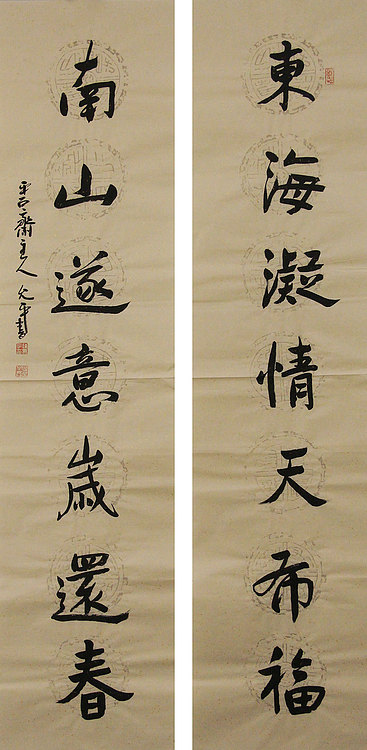 東海凝情天布福
南山遂意歲還春
平石齋主人允平書